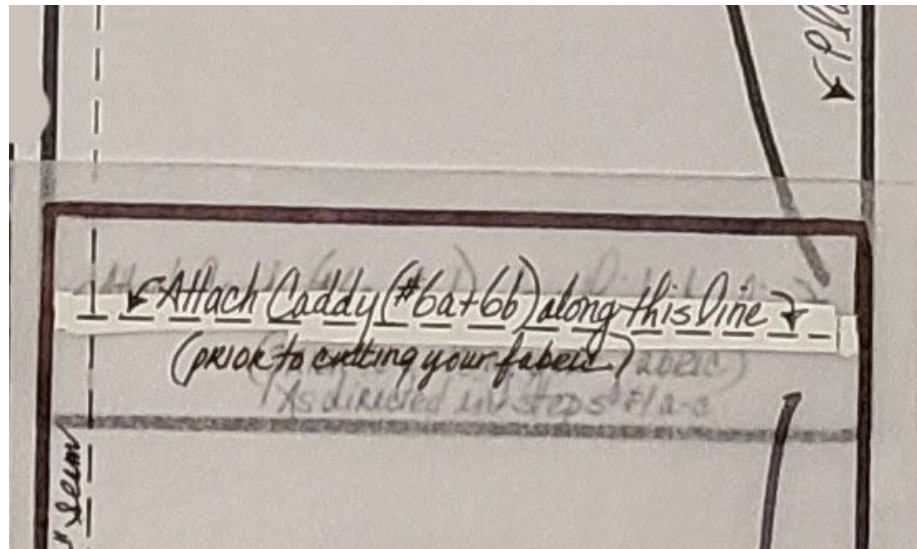 Attach Caddy (#6a+6b) along this line
(prior to cutting your fabric)
As directed in steps #1a-c
" seam